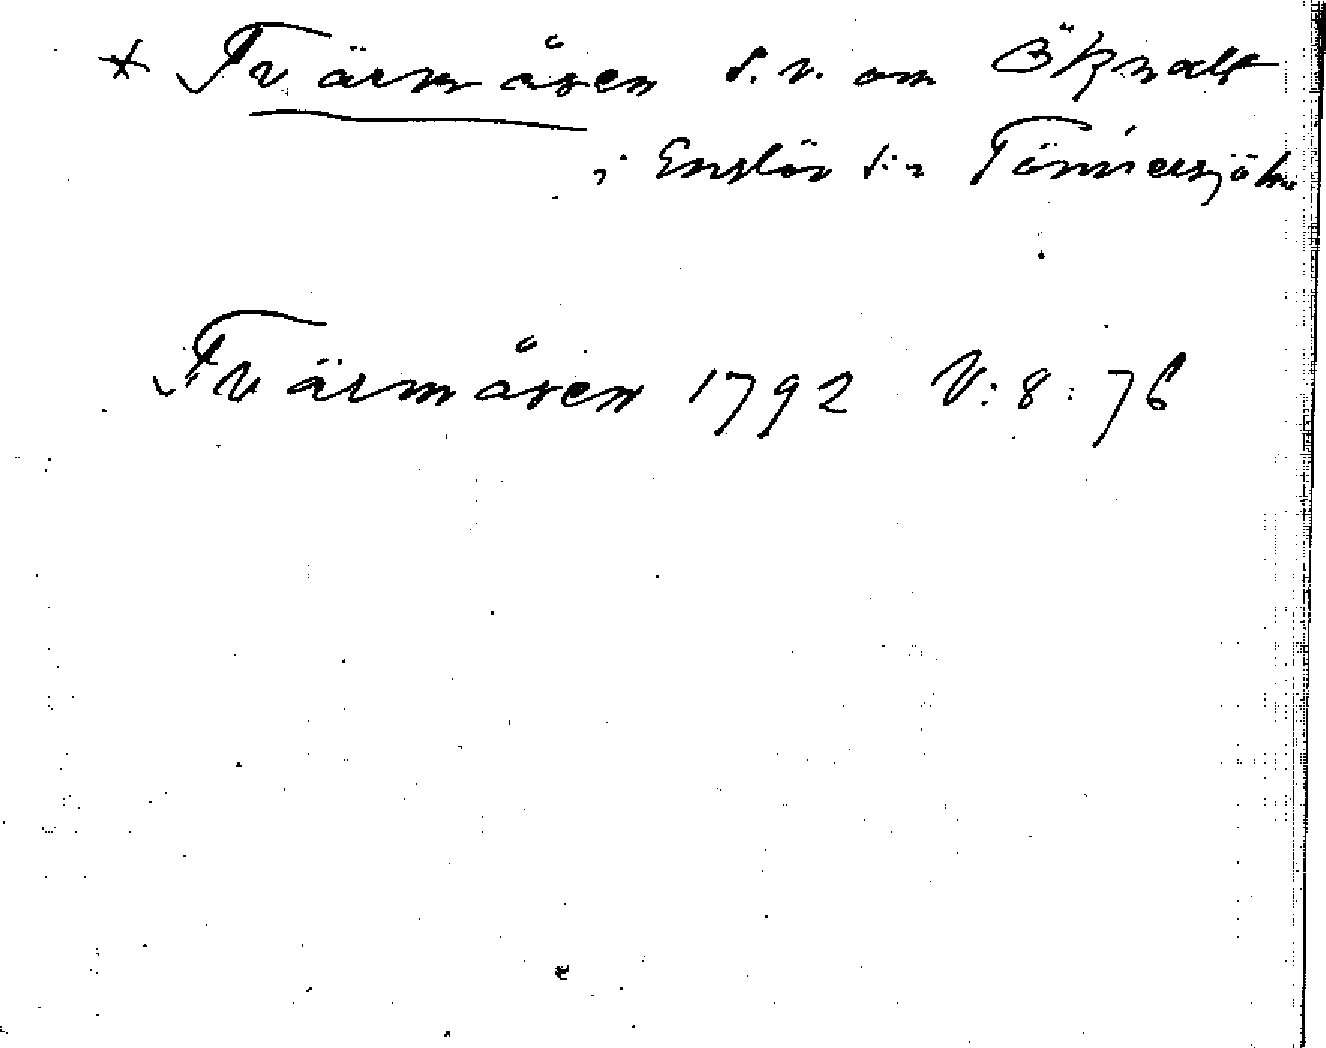 * Tvärmåsen s. v. om Öknalt
i Enslöv s:n Tönnersjö h:
Tvärmåsen 1792 V:8:76